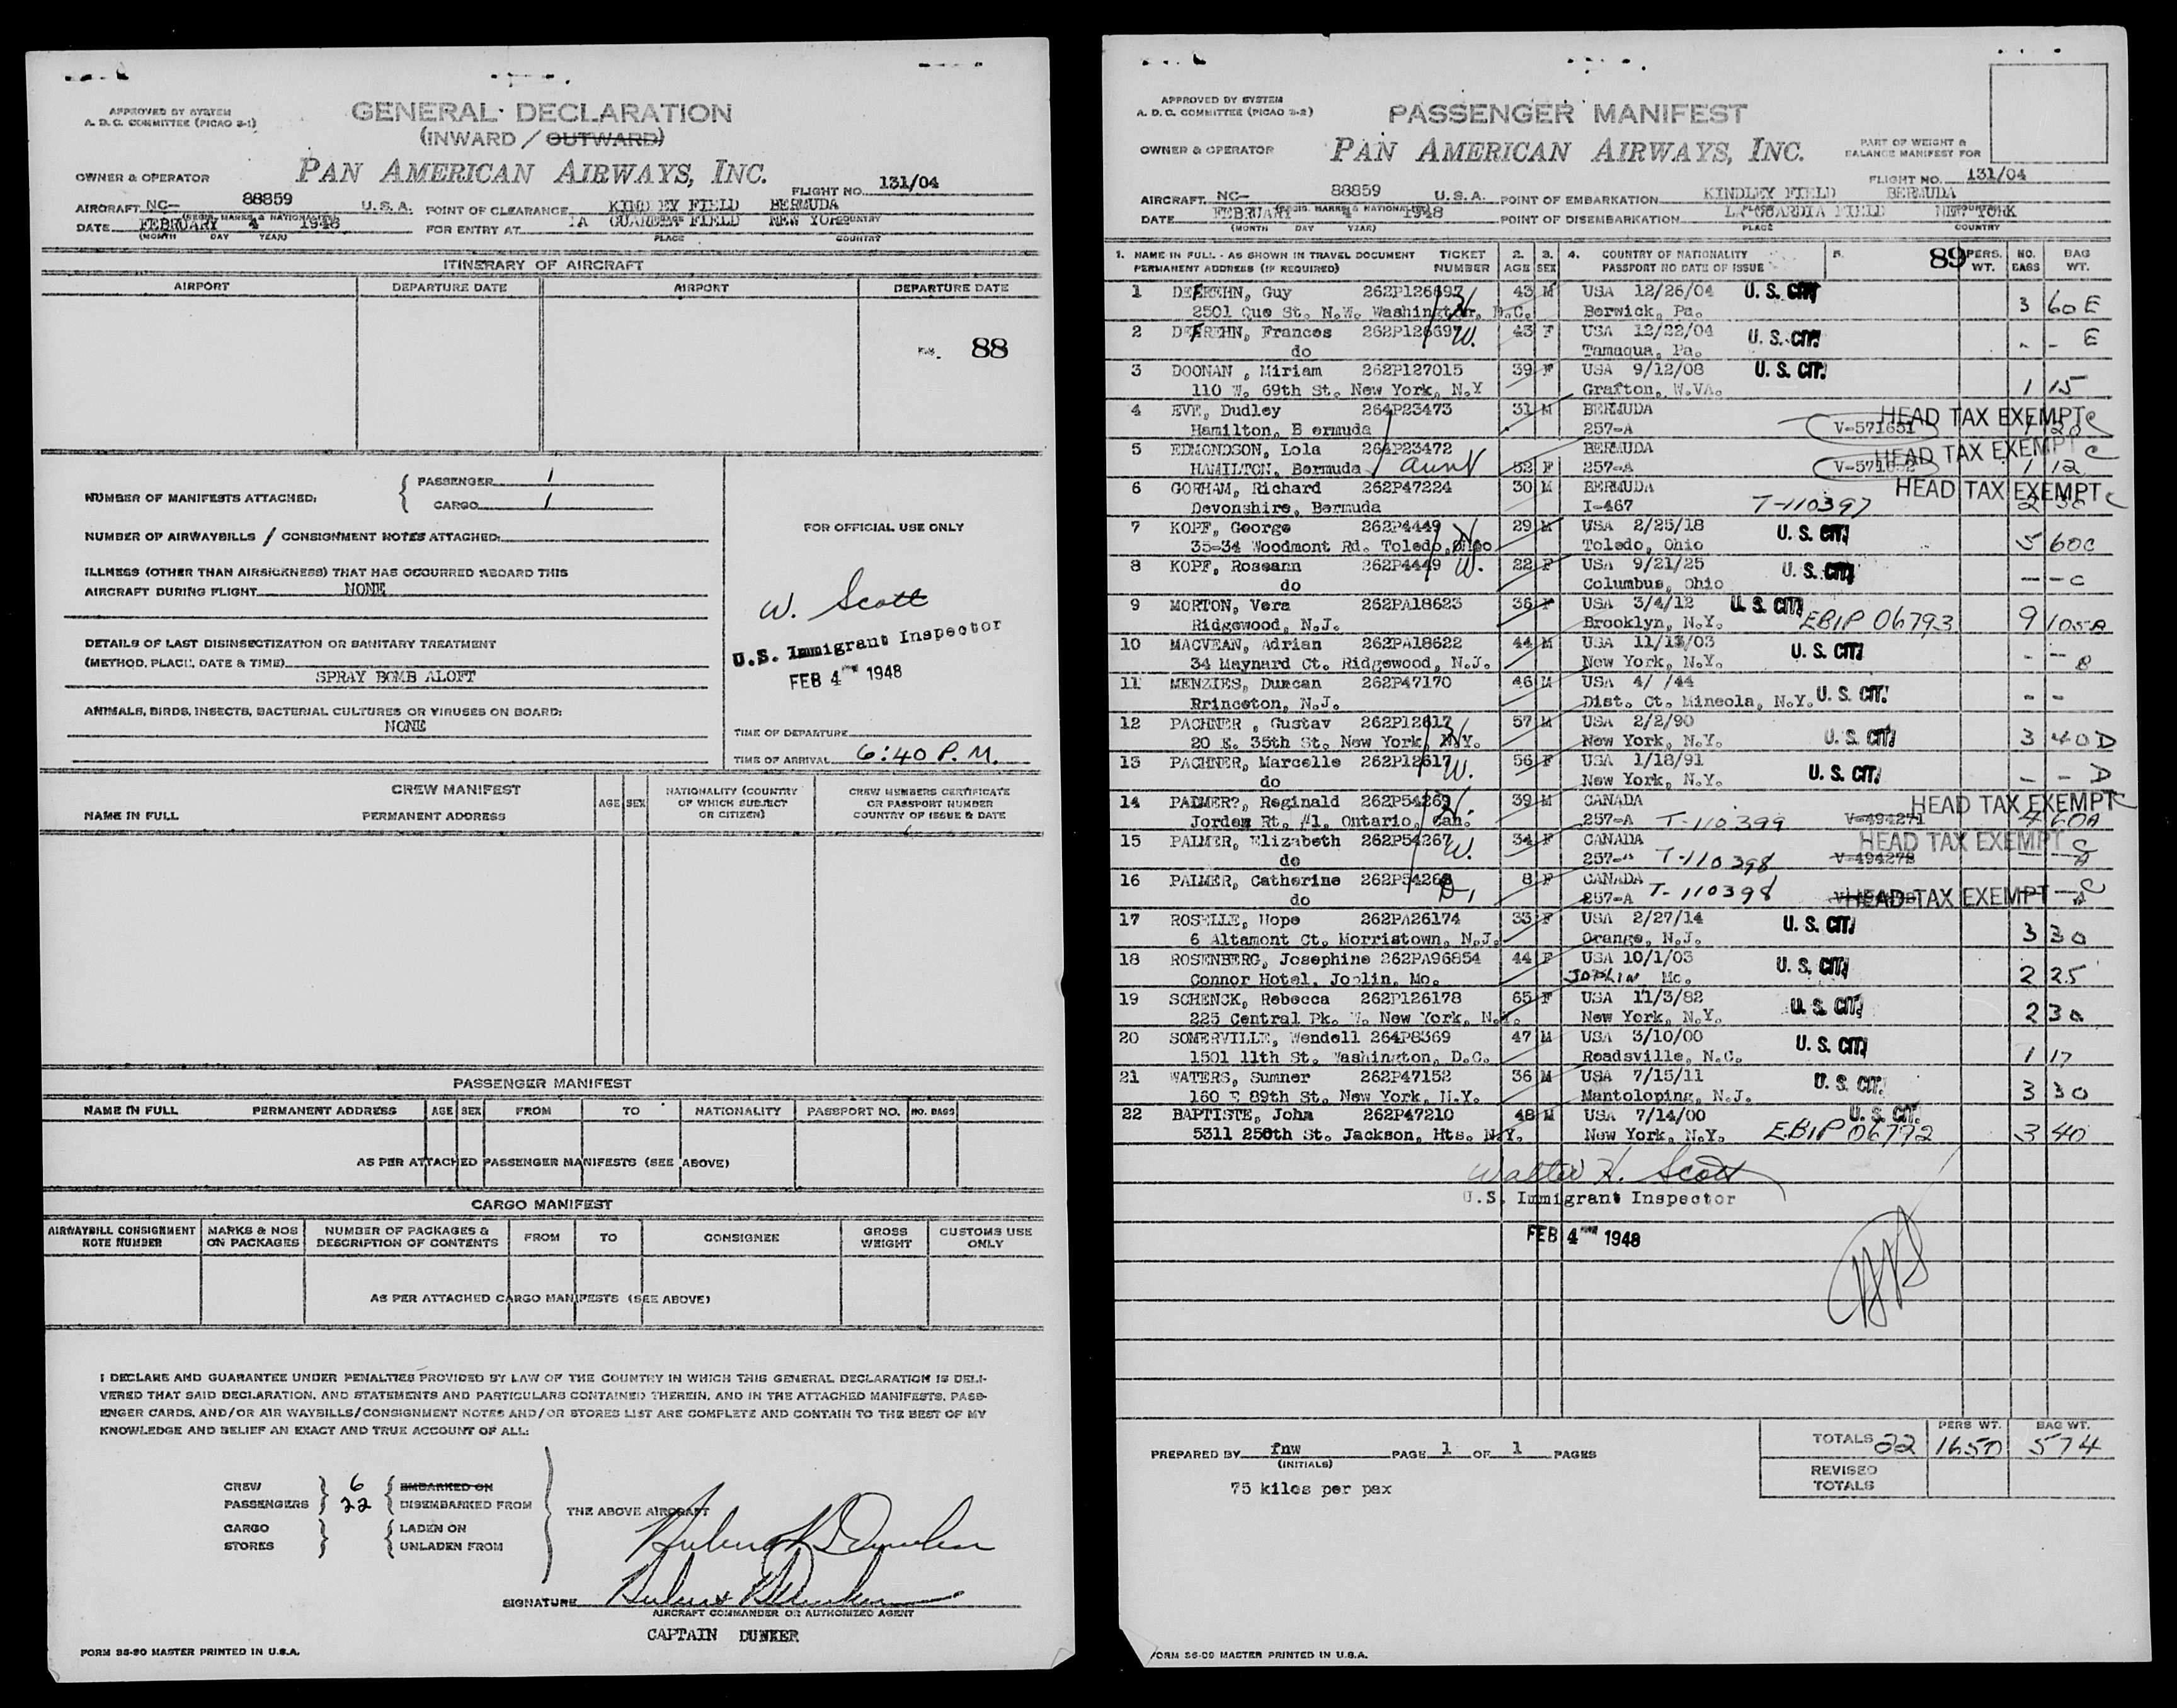 APPROVED BY SYSTEM
A. D. C. COMMITTEE (PICAO 3-1)
GENERAL DECLARATION
(INWARD / OUTWARD)
OWNER & OPERATOR PAN AMERICAN AIRWAYS, INC.
FLIGHT NO. 131/04
AIRCRAFT NC- 88859 U.S.A. POINT OF CLEARANCE KINDLEY FIELD BERMUDA
(REGIS. MARKS & NATIONALITY)
DATE FEBRUARY 4 1948 FOR ENTRY AT LA GUARDIA FIELD NEW YORK
(MONTH DAY YEAR) PLACE COUNTRY
ITINERARY OF AIRCRAFT
AIRPORT DEPARTURE DATE AIRPORT DEPARTURE DATE
88
NUMBER OF MANIFESTS ATTACHED: { PASSENGER 1
CARGO 1
NUMBER OF AIRWAYBILLS / CONSIGNMENT NOTES ATTACHED:
ILLNESS (OTHER THAN AIRSICKNESS) THAT HAS OCCURRED ABOARD THIS
AIRCRAFT DURING FLIGHT NONE
DETAILS OF LAST DISINSECTIZATION OR SANITARY TREATMENT
(METHOD, PLACE, DATE & TIME)
SPRAY BOMB ALOFT
ANIMALS, BIRDS, INSECTS, BACTERIAL CULTURES OR VIRUSES ON BOARD:
NONE
FOR OFFICIAL USE ONLY
W. Scott
U.S. Immigrant Inspector
FEB 4 1948
TIME OF DEPARTURE
TIME OF ARRIVAL 6:40 P.M.
CREW MANIFEST
NAME IN FULL PERMANENT ADDRESS AGE SEX
NATIONALITY (COUNTRY OF WHICH SUBJECT OR CITIZEN)
CREW MEMBERS CERTIFICATE OR PASSPORT NUMBER COUNTRY OF ISSUE & DATE
PASSENGER MANIFEST
NAME IN FULL PERMANENT ADDRESS AGE SEX FROM TO NATIONALITY PASSPORT NO. NO. BAGS
AS PER ATTACHED PASSENGER MANIFESTS (SEE ABOVE)
CARGO MANIFEST
AIRWAYBILL CONSIGNMENT NOTE NUMBER
MARKS & NOS ON PACKAGES
NUMBER OF PACKAGES & DESCRIPTION OF CONTENTS
FROM TO CONSIGNEE GROSS WEIGHT CUSTOMS USE ONLY
AS PER ATTACHED CARGO MANIFESTS (SEE ABOVE)
I DECLARE AND GUARANTEE UNDER PENALTIES PROVIDED BY LAW OF THE COUNTRY IN WHICH THIS GENERAL DECLARATION IS DELI-
VERED THAT SAID DECLARATION, AND STATEMENTS AND PARTICULARS CONTAINED THEREIN, AND IN THE ATTACHED MANIFESTS, PASS-
ENGER CARDS, AND/OR AIR WAYBILLS/CONSIGNMENT NOTES AND/OR STORES LIST ARE COMPLETE AND CONTAIN TO THE BEST OF MY
KNOWLEDGE AND BELIEF AN EXACT AND TRUE ACCOUNT OF ALL:
CREW 6 EMBARKED ON
PASSENGERS 22 DISEMBARKED FROM THE ABOVE AIRCRAFT
CARGO LADEN ON
STORES UNLADEN FROM
SIGNATURE
AIRCRAFT COMMANDER OR AUTHORIZED AGENT
CAPTAIN DUNKER
FORM 86-90 MASTER PRINTED IN U.S.A.
APPROVED BY SYSTEM
A. D. C. COMMITTEE (PICAO 3-2)
PASSENGER MANIFEST
OWNER & OPERATOR PAN AMERICAN AIRWAYS, INC.
PART OF WEIGHT &
BALANCE MANIFEST FOR
FLIGHT NO. 131/04
AIRCRAFT NC- 88859 U.S.A. POINT OF EMBARKATION KINDLEY FIELD BERMUDA
(REGIS. MARKS & NATIONALITY) PLACE COUNTRY
DATE FEBRUARY 4 1948 POINT OF DISEMBARKATION LA GUARDIA FIELD NEW YORK
(MONTH DAY YEAR) PLACE COUNTRY
1. NAME IN FULL - AS SHOWN IN TRAVEL DOCUMENT TICKET 2. 3. 4. COUNTRY OF NATIONALITY 5. 89 PERS. NO. BAG
PERMANENT ADDRESS (IF REQUIRED) NUMBER AGE SEX PASSPORT NO DATE OF ISSUE WT. BAGS WT.
1 Guy 262P126697 H. 43 M USA 12/26/04 U. S. CIT. 3 60 E
2501 Que St. N.W. Washington, D.C. Berwick, Pa.
2 Frances 262P126697 W. 43 F USA 12/22/04 U. S. CIT. - - E
do Tamaqua, Pa.
3 DOONAN , Miriam 262P127015 39 F USA 9/12/08 U. S. CIT. 1 15
110 W. 69th St. New York, N.Y Grafton, W.VA.
4 EVE, Dudley 264P23473 31 M BERMUDA HEAD TAX EXEMPT C
Hamilton, B ermuda 257-A V-571651 1 20
5 EDMONDSON, Lola 264P23472 BERMUDA HEAD TAX EXEMPT C
HAMILTON, Bermuda aunt 52 F 257-A V-571652 1 12
6 GORHAM, Richard 262P47224 30 M BERMUDA HEAD TAX EXEMPT C
Devonshire, Bermuda I-467 T-110397 2
7 KOPF, George 262P4449 H 29 M USA 2/25/18 U. S. CIT. 5 60 C
35-34 Woodmont Rd. Toledo, Ohio Toledo, Ohio
8 KOPF, Roseann 262P4449 W. 22 F USA 9/21/25 U. S. CIT. - - C
do Columbus, Ohio
9 MORTON, Vera 262PA18623 36 F USA 3/4/12 U. S. CIT.
Ridgewood, N.J. Brooklyn, N.Y. EBIP 06793 9 105 A
10 MACVEAN, Adrian 262PA18622 44 M USA 11/13/03 U. S. CIT. - -
34 Maynard Ct. Ridgewood, N.J. New York, N.Y.
11 MENZIES, Duncan 262P47170 46 M USA 4/ /44
Rrinceton, N.J. Dist. Ct. Mineola, N.Y. U. S. CIT. - -
12 PACHNER , Gustav 262P12617 H. 57 M USA 2/2/90
20 E. 35th St. New York, N.Y. New York, N.Y. U. S. CIT. 3 40 D
13 PACHNER, Marcelle 262P12617 W. 56 F USA 1/18/91
do New York, N.Y. U. S. CIT. - - D
14 PALMER?, Reginald 262P54269 H. 39 M CANADA HEAD TAX EXEMPT C
Jorden Rt. #1, Ontario, Can. 257-A T-110399 V-494271 4 60 A
15 PALMER, Elizabeth 262P54267 W. 34 F CANADA HEAD TAX EXEMPT C
do 257-A T-110398 V-494272 - - A
16 PALMER, Catherine 262P54268 D. 8 F CANADA T-110398 HEAD TAX EXEMPT - - C
do 257-A A
17 ROSELLE, Hope 262PA26174 33 F USA 2/27/14 U. S. CIT. 3 30
6 Altamont Ct. Morristown, N.J. Orange, N.J.
18 ROSENBERG, Josephine 262PA96854 44 F USA 10/1/03 U. S. CIT. 2 25
Connor Hotel, Joplin, Mo. JOPLIN Mo.
19 SCHENCK, Rebecca 262P126178 65 F USA 11/3/82 U. S. CIT. 2 30
225 Central Pk. W. New York, N.Y. New York, N.Y.
20 SOMERVILLE, Wendell 264P8369 47 M USA 3/10/00 U. S. CIT. 1 17
1501 11th St. Washington, D.C. Readsville, N.C.
21 WATERS, Sumner 262P47152 36 M USA 7/15/11 U. S. CIT. 3 30
160 E 89th St. New York, N.Y. Mantoloping, N.J.
22 BAPTISTE, John 262P47210 48 M USA 7/14/00 U. S. CIT.
5311 250th St. Jackson, Hts. N.Y. New York, N.Y. EBIP 06772 3 40
Walter H. Scott
U.S. Immigrant Inspector
FEB 4 1948
TOTALS 22 PERS WT. 1650 BAG WT. 574
PREPARED BY fnw PAGE 1 OF 1 PAGES
(INITIALS)
REVISED TOTALS
75 kilos per pax
FORM 86-90 MASTER PRINTED IN U.S.A.